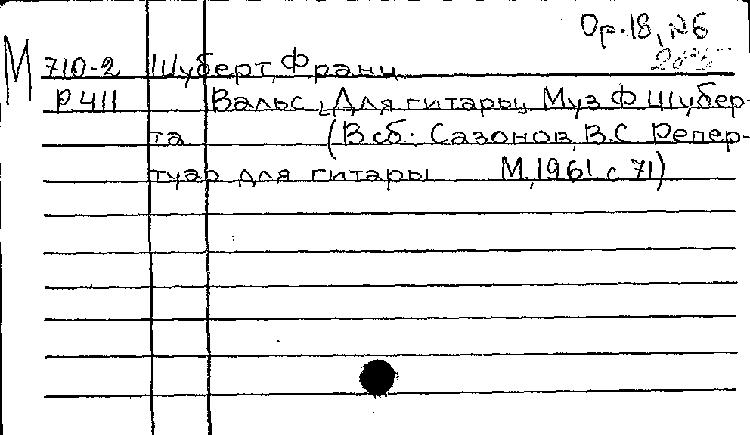 Ор.18, №6
М 710-2 Шуберт, Франц
Р411 Вальс, Для гитары, Муз Ф Шубер-
та (В сб. Сазонов, В.С Репер-
туар для гитары М, 1961 с 71)